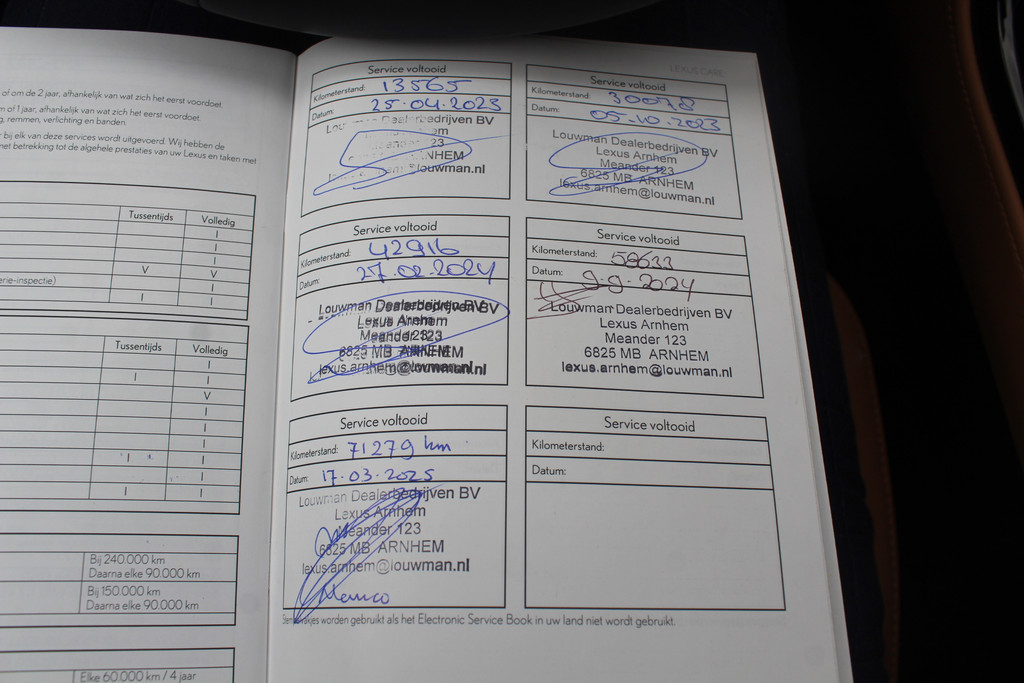 of om de 2 jaar, afhankelijk van wat zich het eerst voordoet.
m of 1 jaar, afhankelijk van wat zich het eerst voordoet.
remmen, verlichting en banden.
bij elk van deze services wordt uitgevoerd. Wij hebben de
met betrekking tot de algehele prestaties van uw Lexus en taken met
Tussentijds Volledig
I
I
I
V V
erie-inspectie) I
I I
Tussentijds Volledig
I
I I
V
I
I
I I
I
I I
Bij 240.000 km
Daarna elke 90.000 km
Bij 150.000 km
Daarna elke 90.000 km
Elke 60.000 km / 4 jaar
LEXUS CARE
Service voltooid
Kilometerstand: 13565
Datum: 25.04.2023
Louwman Dealerbedrijven BV
Lexus Arnhem
Meander 123
ARNHEM
lexus.arnhem@louwman.nl
Service voltooid
Kilometerstand: 30078
Datum: 05.10.2023
Louwman Dealerbedrijven BV
Lexus Arnhem
Meander 123
6825 MB ARNHEM
lexus.arnhem@louwman.nl
Service voltooid
Kilometerstand: 42916
Datum: 27.02.2024
Louwman Dealerbedrijven BV
Lexus Arnhem
Meander 123
6825 MB ARNHEM
lexus.arnhem@louwman.nl
Service voltooid
Kilometerstand: 58633
Datum: 9-9-2024
Louwman Dealerbedrijven BV
Lexus Arnhem
Meander 123
6825 MB ARNHEM
lexus.arnhem@louwman.nl
Service voltooid
Kilometerstand: 71279 km
Datum: 17.03.2025
Louwman Dealerbedrijven BV
Lexus Arnhem
Meander 123
6825 MB ARNHEM
lexus.arnhem@louwman.nl
Service voltooid
Kilometerstand:
Datum:
worden gebruikt als het Electronic Service Book in uw land niet wordt gebruikt.